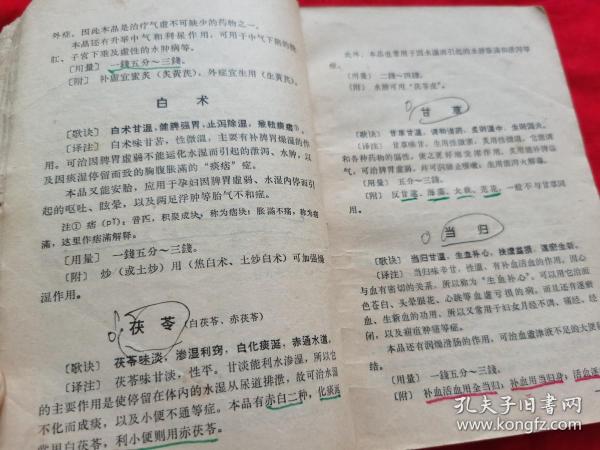 外症，因此本品是治疗气虚不可缺少的药物之一。
本品还有升举中气和利尿作用，可用于中气下陷的脱
肛、子宫下垂及虚性的水肿病等。
〔用量〕 一錢五分～三錢。
〔附〕 补虚宜蜜炙（炙黄芪），外症宜生用（生黄芪）。
白术
〔歌诀〕 白术甘温，健脾强胃，止泻除湿，兼祛痰痞①。
〔译注〕 白术味甘苦，性微温，主要有补脾胃燥湿的作
用。可治因脾胃虚弱不能运化水湿而引起的泄泻、水肿，以
及因痰湿停留而致的胸腹胀满的“痰痞”症。
本品又能安胎，应用于孕妇因脾胃虚弱、水湿内停而引
起的呕吐、眩晕，以及两足浮肿等胎气不和症。
注① 痞（pǐ）：音匹，积聚成块，称为痞块；胀滿不痛，称为痞
滿，这里作痞滿解释。
〔用量〕 一錢五分～三錢。
〔附〕 炒（或土炒）用（焦白术、土炒白术）可加强燥
湿作用。
茯苓（白茯苓、赤茯苓）
〔歌诀〕 茯苓味淡，渗湿利窍，白化痰涎，赤通水道。
〔译注〕 茯苓味甘淡，性平。甘淡能利水渗湿，所以它
的主要作用是使停留在体内的水湿从尿道排泄，故可治水湿
不化而成痰，以及小便不通等症。本品有赤白二种，化痰涎
常用白茯苓，利小便则用赤茯苓。
此外，本品也常用于因水湿而引起的水肿胀滿和泄泻等
症。
〔用量〕 一錢～四錢。
〔附〕 水肿可用“茯苓皮”。
甘草
〔歌诀〕 甘草甘温，调和诸药，炙则温中，生则泻火。
〔用量〕 五分～三錢。
〔附〕 反甘遂、海藻、大戟、芫花，一般不与甘草同
用。
当归
〔歌诀〕 当归甘温，生血补心，扶虚益损，逐瘀生新。
〔译注〕 当归味辛甘，性温，有补血活血的作用，因心
与血有密切的关系，所以称为“生血补心”。可以用它治面
色苍白、头晕眼花、心跳等血虚亏损的病。而且还有逐瘀
血、生新血的功用，所以又常用于妇女月经不调、痛经、经
闭，以及痈疽肿痛等症。
本品还有润燥滑肠的作用，可治血虚津液不足的大便秘
结。
〔用量〕 一錢五分～三錢。
〔附〕 补血活血用全当归，补血用当归身，活血
孔夫子旧书网
www.kongfz.com